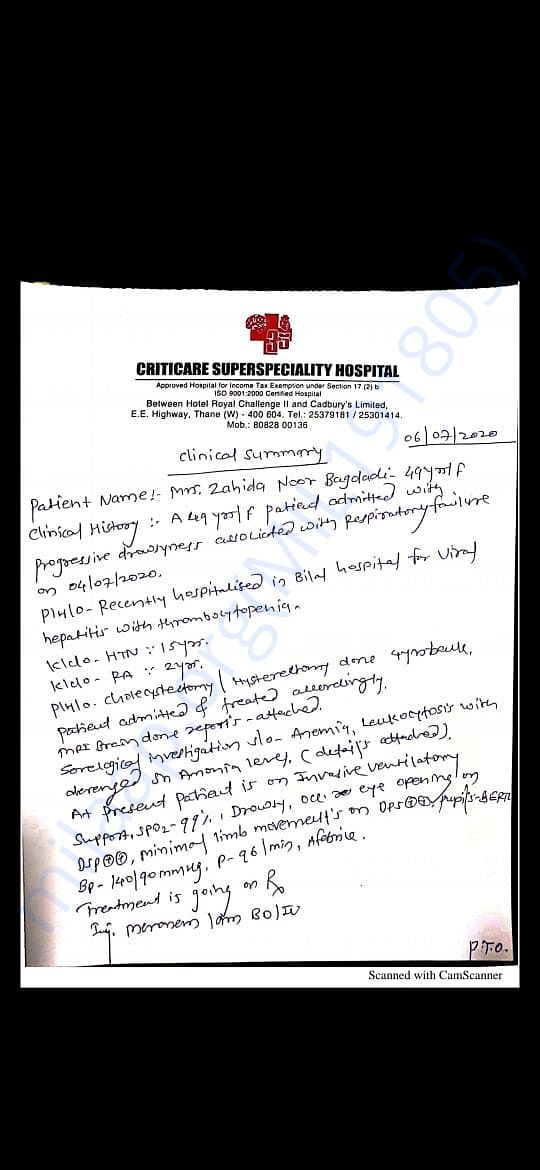 35
CRITICARE SUPERSPECIALITY HOSPITAL
Approved Hospital for Income Tax Exemption under Section 17 (2) b
ISO 9001:2000 Certified Hospital
Between Hotel Royal Challenge II and Cadbury's Limited,
E.E. Highway, Thane (W) - 400 604. Tel.: 25379181 / 25301414.
Mob.: 80828 00136
06/07/2020
Clinical Summary
Patient Name:- Mrs. Zahida Noor Bagdadi- 49yr/F
Clinical History :- A 49 yrs/F patient admitted with
progressive drowsyness associated with Respiratory failure
on 04/07/2020.
P/H/O- Recently hospitalised in Bilal hospital for Viral
hepatitis with thrombocytopenia.
K/C/O- HTN :- 15yrs.
K/C/O- RA :- 2yr.
P/H/O. cholecystectomy / Hysterectomy done 4yrs back,
Patient admitted & treated accordingly.
MRI Brain done report's-attached.
Sorelogical investigation s/o- Anemia, Leukocytosis with
derenged in Amonia level, (detail's attached).
At present Patient is on Invasive ventilatory
support, SPO2-99%, Drowsy, occ. eye opening on
DSP⊕⊕, minimal limb movement's on DPS⊕⊕, pupil's-BERTL
BP- 140/90mmHg, P-96/min, Afebrile.
Treatment is going on Rx
Inj. meronem 1gm BD/IV
P.T.O.
Scanned with CamScanner
milaap.org(MIL191805)